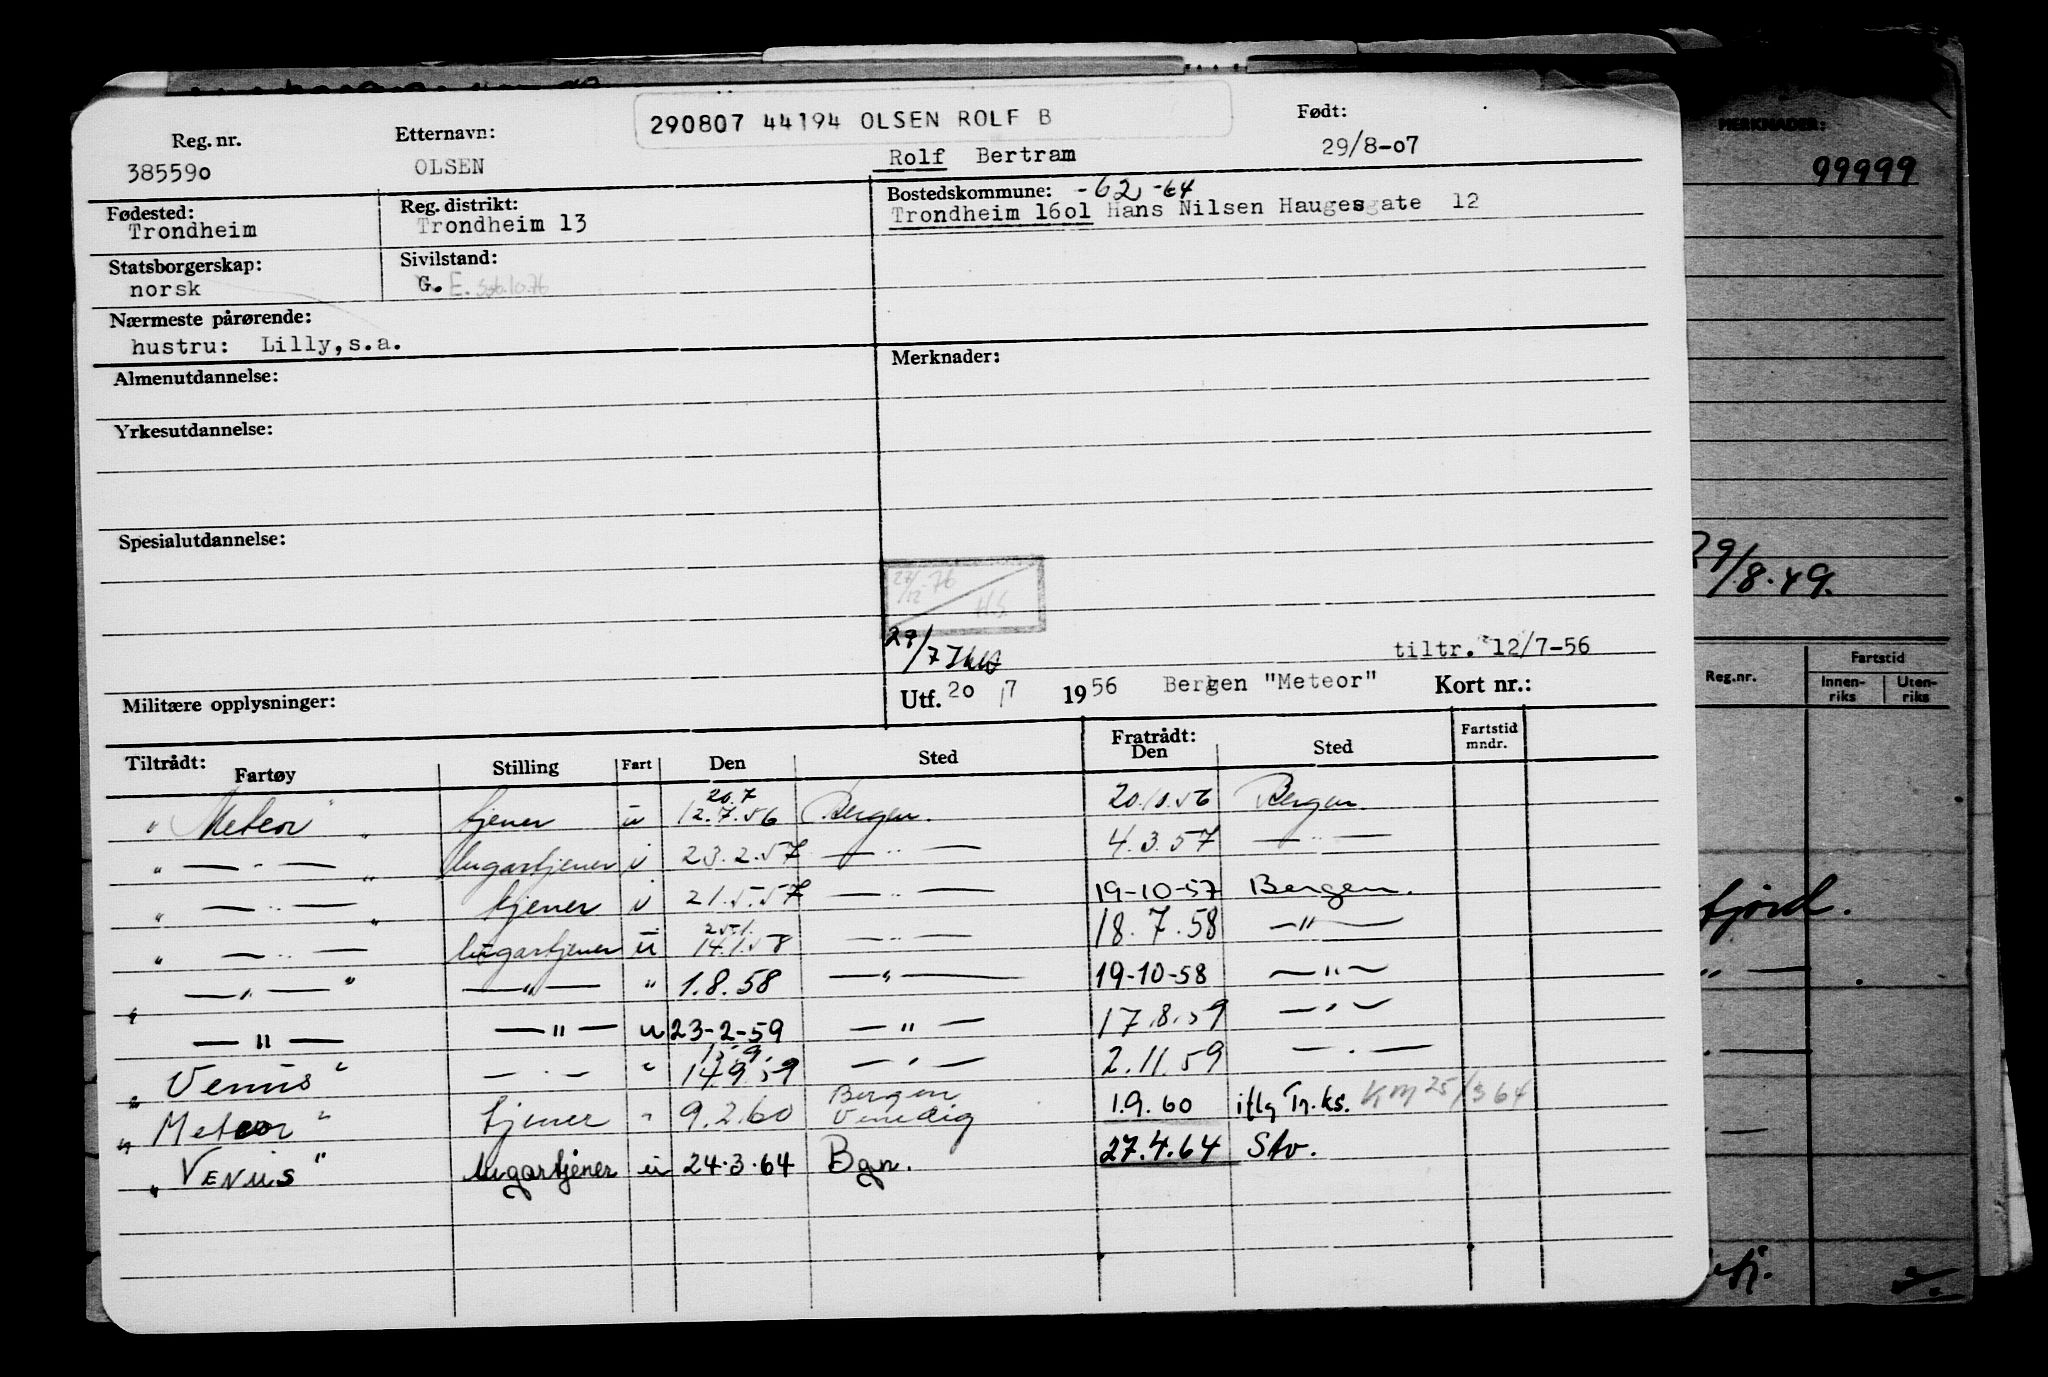 290807 44194 OLSEN ROLF B
Reg. nr. Etternavn: Født:
385590 OLSEN Rolf Bertram 29/8-07
MERKNADER:
99999
Fødested: Reg. distrikt: Bostedskommune: -62 -64
Trondheim Trondheim 13 Trondheim 1601 Hans Nilsen Haugesgate 12
Statsborgerskap: Sivilstand:
norsk G. E.
Nærmeste pårørende:
hustru: Lilly, s.a.
Almenutdannelse: Merknader:
Yrkesutdannelse:
Spesialutdannelse:
27/12-76 HS
29/8.49.
29/7
tiltr. 12/7-56
Militære opplysninger: Utf. 20 / 7 1956 Bergen "Meteor" Kort nr.:
Reg.nr. Fartstid
Innenriks Utenriks
Tiltrådt: Fratrådt: Fartstid mndr.
Fartøy Stilling Fart Den Sted Den Sted
20.7
" Meteor " tjener u 12.7.56 Bergen. 20.10.56 Bergen
" — " — " lugartjener u 23.2.57 — " — 4.3.57 — " —
" — " — " tjener u 21.5.57 — " — 19-10-57 Bergen.
25.1.
" — " — lugartjener u 14.1.58 — " — 18.7.58 — " —
" — " — " — " — " 1.8.58 — " — 19-10-58 — " —
— " — — " — u 23-2-59 — " — 17.8.59 — " —
15.9.
" Venus " — " — " 14.9.59 — " — 2.11.59 — " —
Bergen
" Meteor " tjener " 9.2.60 Venedig 1.9.60 iflg Tr.ks. KM 25/3 64
" VENUS " lugartjener u 24.3.64 Bgn. 27.4.64 Stv.
fjord.